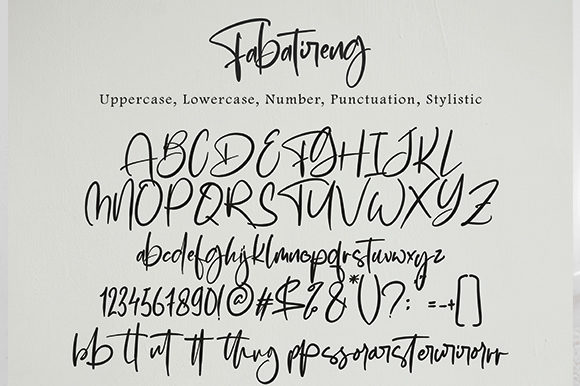 Fabatireng
Uppercase, Lowercase, Number, Punctuation, Stylistic
ABCDEFGHIJKL
MNOPQRSTUVWXYZ
abcdefghijklmnopqrstuvwxyz
1234567890!@#$%&*()?:=-+[]